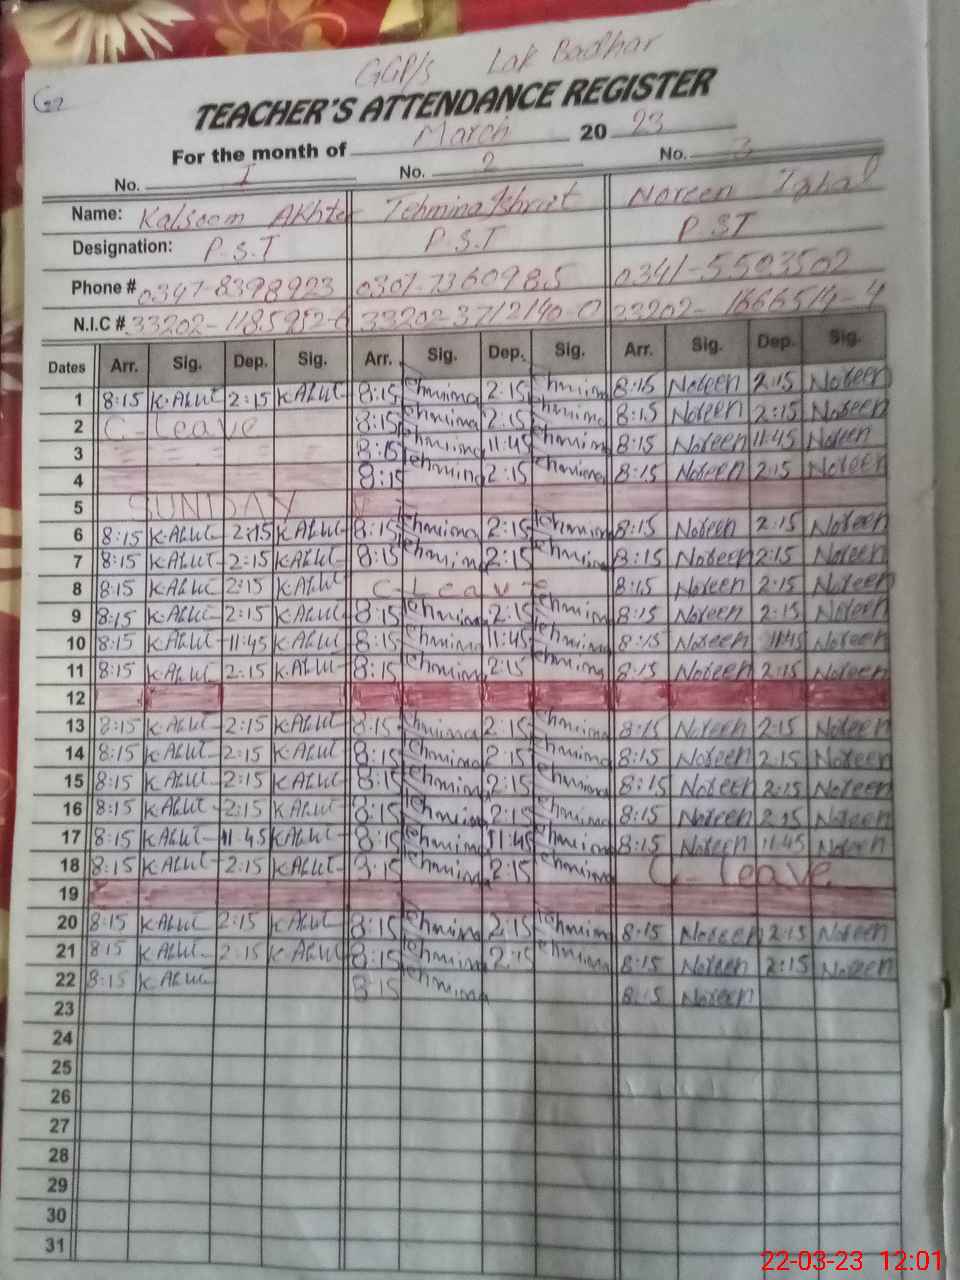 GGP/s Lak Badhar
G2
TEACHER'S ATTENDANCE REGISTER
For the month of March 20 23
No. 1 No. 2 No. 3
Name: Kalsoom Akhter Tehmina Ishrat Noreen Iqbal
Designation: P.S.T P.S.T PST
Phone # 0347-8398923 0307-7360985 0341-5503502
N.I.C # 33202-1185952-6 33202-3712140-0 33202-1666514-4
Dates Arr. Sig. Dep. Sig. Arr. Sig. Dep. Sig. Arr. Sig. Dep. Sig.
1 8:15 K.Akht 2:15 K.Akht 8:15 Tehmina 2:15 Tehmina 8:15 Noreen 2:15 Noreen
2 C-Leave 8:15 Tehmina 2:15 Tehmina 8:15 Noreen 2:15 Noreen
3 8:15 Tehmina 11:45 Tehmina 8:15 Noreen 11:45 Noreen
4 8:15 Tehmina 2:15 Tehmina 8:15 Noreen 2:15 Noreen
5 SUNDAY
6 8:15 K.Akht 2:15 K.Akht 8:15 Tehmina 2:15 Tehmina 8:15 Noreen 2:15 Noreen
7 8:15 K.Akht 2:15 K.Akht 8:15 Tehmina 2:15 Tehmina 8:15 Noreen 2:15 Noreen
8 8:15 K.Akht 2:15 K.Akht C-Leave 8:15 Noreen 2:15 Noreen
9 8:15 K.Akht 2:15 K.Akht 8:15 Tehmina 2:15 Tehmina 8:15 Noreen 2:15 Noreen
10 8:15 K.Akht 11:45 K.Akht 8:15 Tehmina 11:45 Tehmina 8:15 Noreen 11:45 Noreen
11 8:15 K.Akht 2:15 K.Akht 8:15 Tehmina 2:15 Tehmina 8:15 Noreen 2:15 Noreen
12
13 8:15 K.Akht 2:15 K.Akht 8:15 Tehmina 2:15 Tehmina 8:15 Noreen 2:15 Noreen
14 8:15 K.Akht 2:15 K.Akht 8:15 Tehmina 2:15 Tehmina 8:15 Noreen 2:15 Noreen
15 8:15 K.Akht 2:15 K.Akht 8:15 Tehmina 2:15 Tehmina 8:15 Noreen 2:15 Noreen
16 8:15 K.Akht 2:15 K.Akht 8:15 Tehmina 2:15 Tehmina 8:15 Noreen 2:15 Noreen
17 8:15 K.Akht 11:45 K.Akht 8:15 Tehmina 11:45 Tehmina 8:15 Noreen 11:45 Noreen
18 8:15 K.Akht 2:15 K.Akht 8:15 Tehmina 2:15 Tehmina C-Leave
19
20 8:15 K.Akht 2:15 K.Akht 8:15 Tehmina 2:15 Tehmina 8:15 Noreen 2:15 Noreen
21 8:15 K.Akht 2:15 K.Akht 8:15 Tehmina 2:15 Tehmina 8:15 Noreen 2:15 Noreen
22 8:15 K.Akht 8:15 Tehmina 8:15 Noreen
23
24
25
26
27
28
29
30
31
22-03-23 12:01